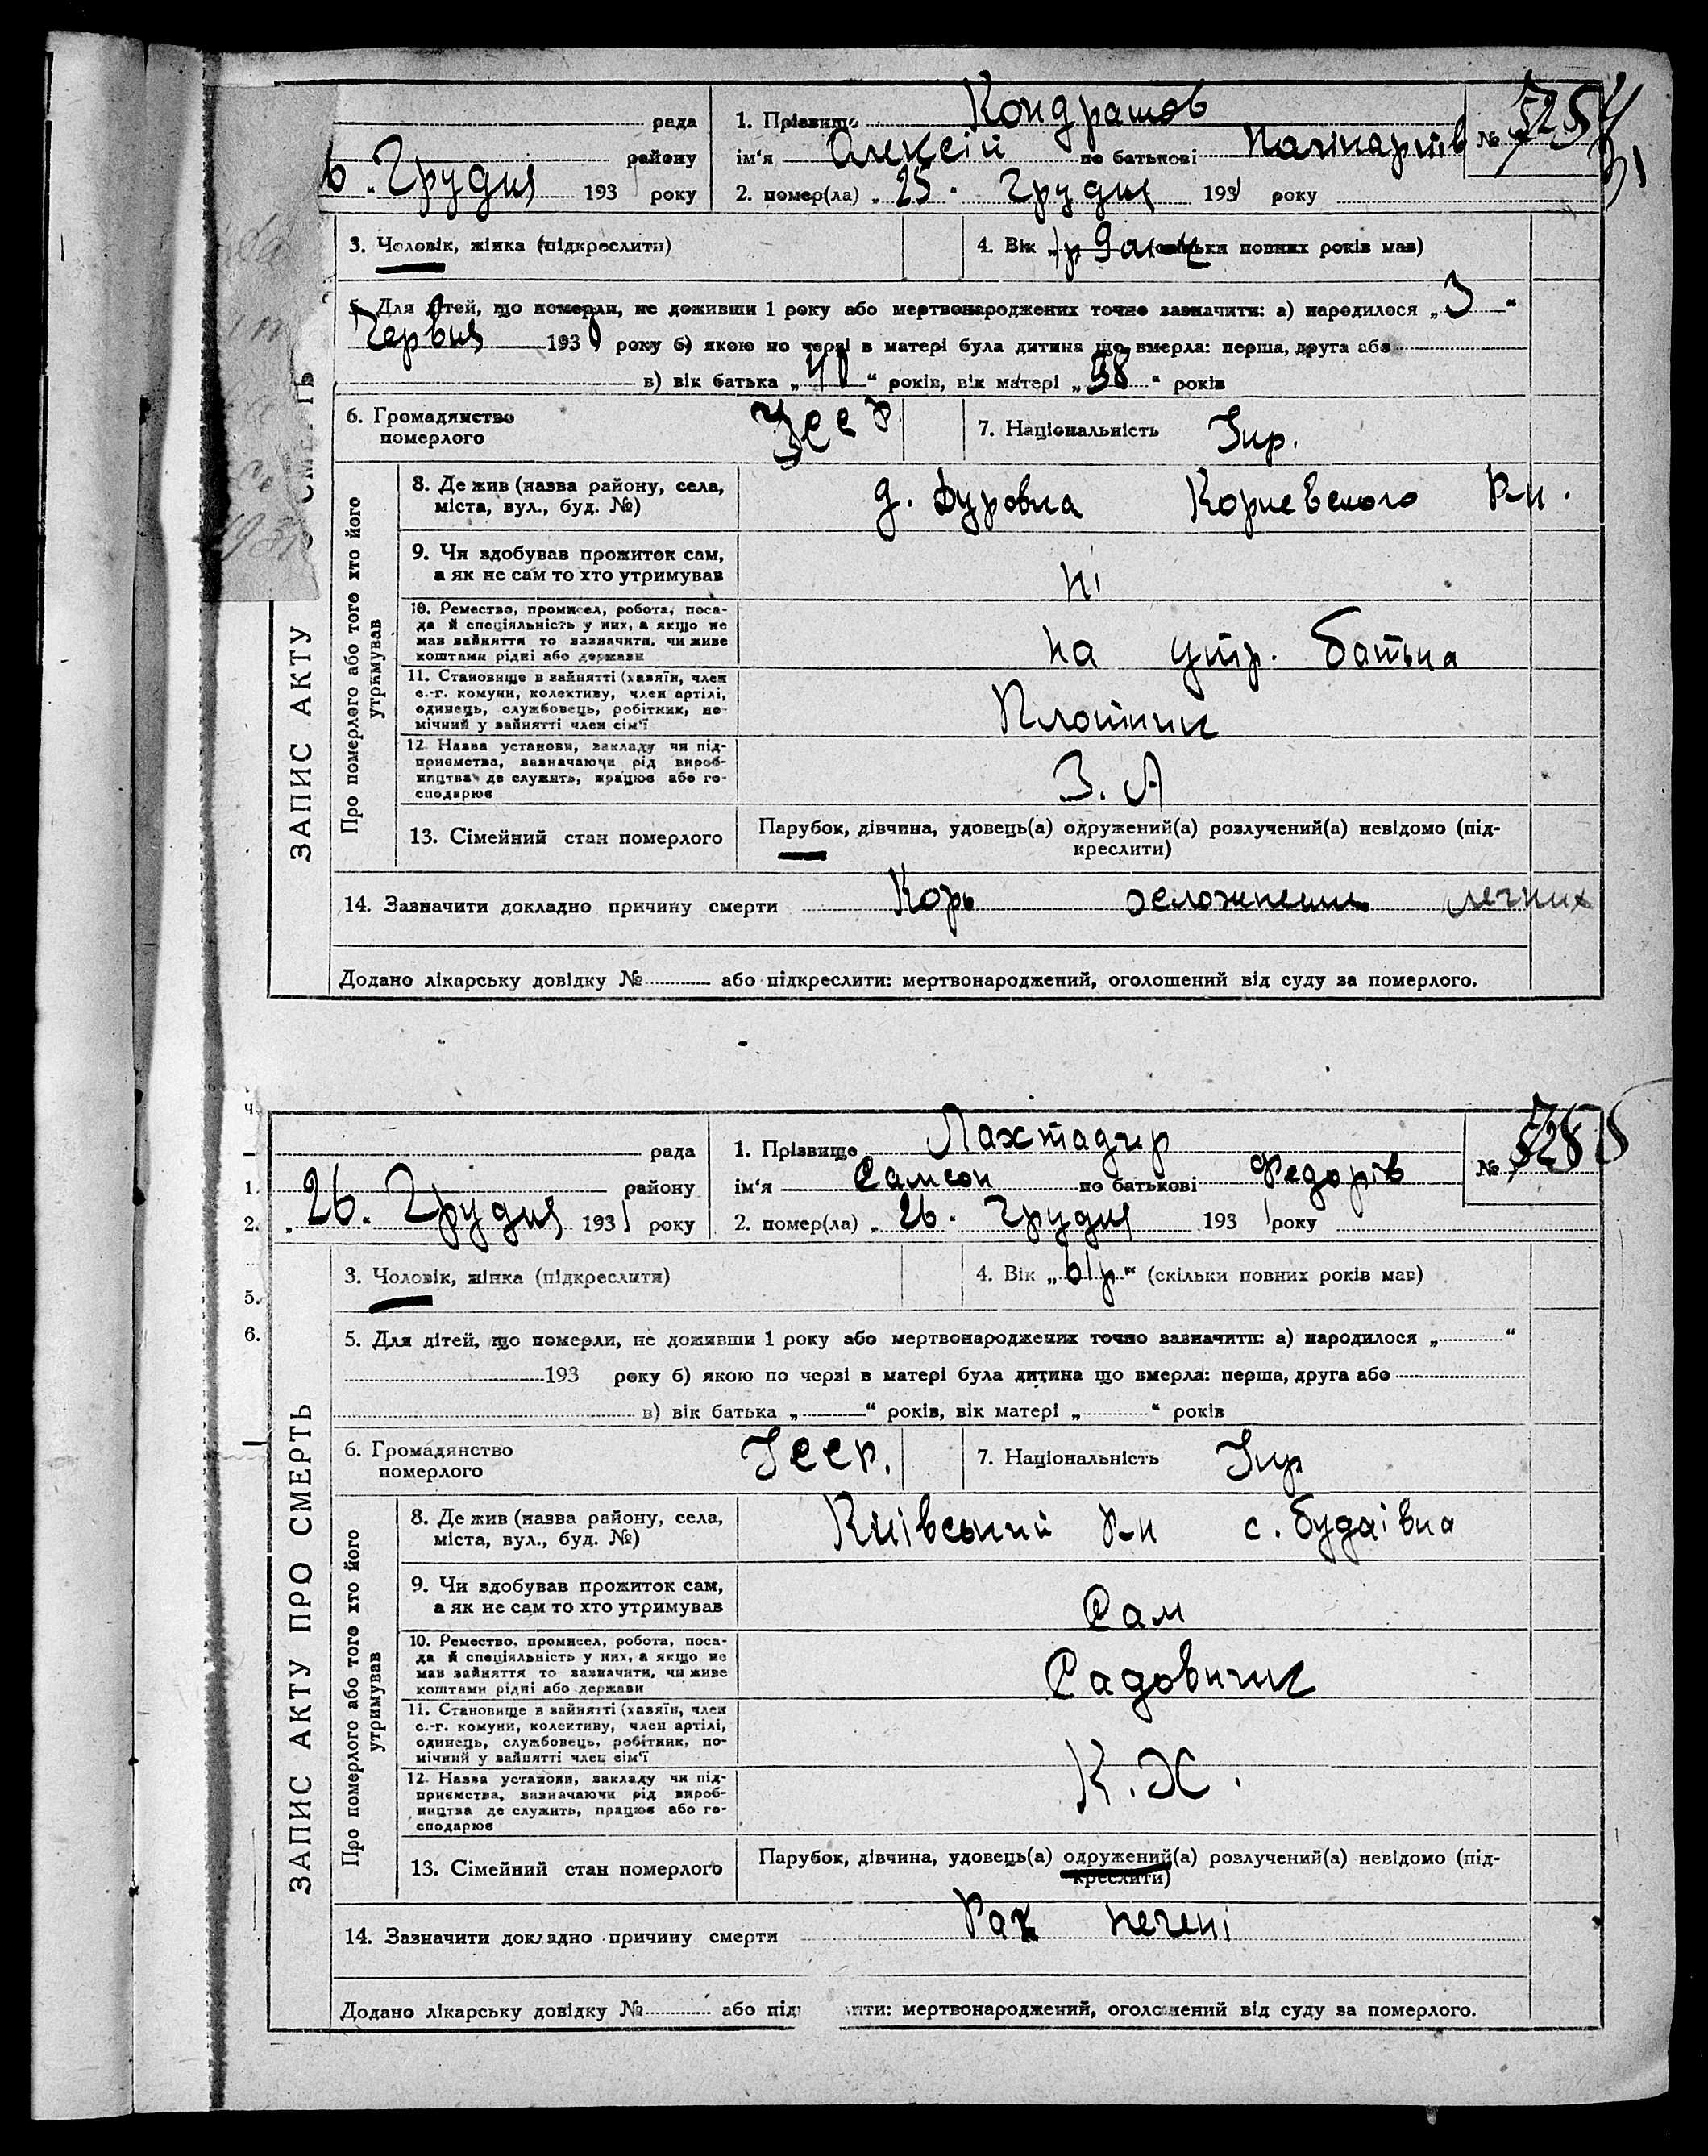 рада
району
Грудня 193 року
1. Прізвище Кондрашов
ім'я Олексій по батькові
№
2. помер(ла) „25" Грудня 1931 року
3. Чоловік, жінка (підкреслити)
4. Вік повних років мав)
5. Для дітей, що померли, не доживши 1 року або мертвонароджених точно зазначити: а) народилося „3"
Червня 193 року б) якою по черзі в матері була дитина що вмерла: перша, друга або
в) вік батька „ " років, вік матері „38" років
6. Громадянство
померлого
УССР
7. Національність Укр.
ЗАПИС АКТУ СМЕРТЬ
Про померлого або того хто його
утримував
8. Де жив (назва району, села,
міста, вул., буд. №)
д. Дуровка р-н.
9. Чи здобував прожиток сам,
а як не сам то хто утримував
ні
10. Ремество, промисел, робота, поса-
да й спеціяльність у них, а якщо не
мав зайняття то зазначити, чи живе
коштами рідні або держави
на утр. батька
11. Становище в зайнятті (хазяїн, член
с.-г. комуни, колективу, член артілі,
одинець, службовець, робітник, по-
мічний у зайнятті член сім'ї
Плотник
12. Назва установи, закладу чи під-
приємства, зазначаючи рід вироб-
ництва де служить, працює або го-
сподарює
З. А
13. Сімейний стан померлого
Парубок, дівчина, удовець(а) одружений(а) розлучений(а) невідомо (під-
креслити)
14. Зазначити докладно причину смерти Корь осложнения легких
Додано лікарську довідку № або підкреслити: мертвонароджений, оголошений від суду за померлого.
рада
району
„26. Грудня 1931 року
1. Прізвище Лахтадир
ім'я Самсон по батькові Федорів
№
2. помер(ла) „26. Грудня 1931 року
3. Чоловік, жінка (підкреслити)
4. Вік „61р" (скільки повних років мав)
5. Для дітей, що померли, не доживши 1 року або мертвонароджених точно зазначити: а) народилося „ "
193 року б) якою по черзі в матері була дитина що вмерла: перша, друга або
в) вік батька „ " років, вік матері „ " років
6. Громадянство
померлого
УССР.
7. Національність Укр
ЗАПИС АКТУ ПРО СМЕРТЬ
Про померлого або того хто його
утримував
8. Де жив (назва району, села,
міста, вул., буд. №)
Київський р-н с. Будаївка
9. Чи здобував прожиток сам,
а як не сам то хто утримував
Сам
10. Ремество, промисел, робота, поса-
да й спеціяльність у них, а якщо не
мав зайняття то зазначити, чи живе
коштами рідні або держави
Садовник
11. Становище в зайнятті (хазяїн, член
с.-г. комуни, колективу, член артілі,
одинець, службовець, робітник, по-
мічний у зайнятті член сім'ї
К.Х.
12. Назва установи, закладу чи під-
приємства, зазначаючи рід вироб-
ництва де служить, працює або го-
сподарює
13. Сімейний стан померлого
Парубок, дівчина, удовець(а) одружений(а) розлучений(а) невідомо (під-
креслити)
14. Зазначити докладно причину смерти Рак печені
Додано лікарську довідку № або під ити: мертвонароджений, оголошений від суду за померлого.